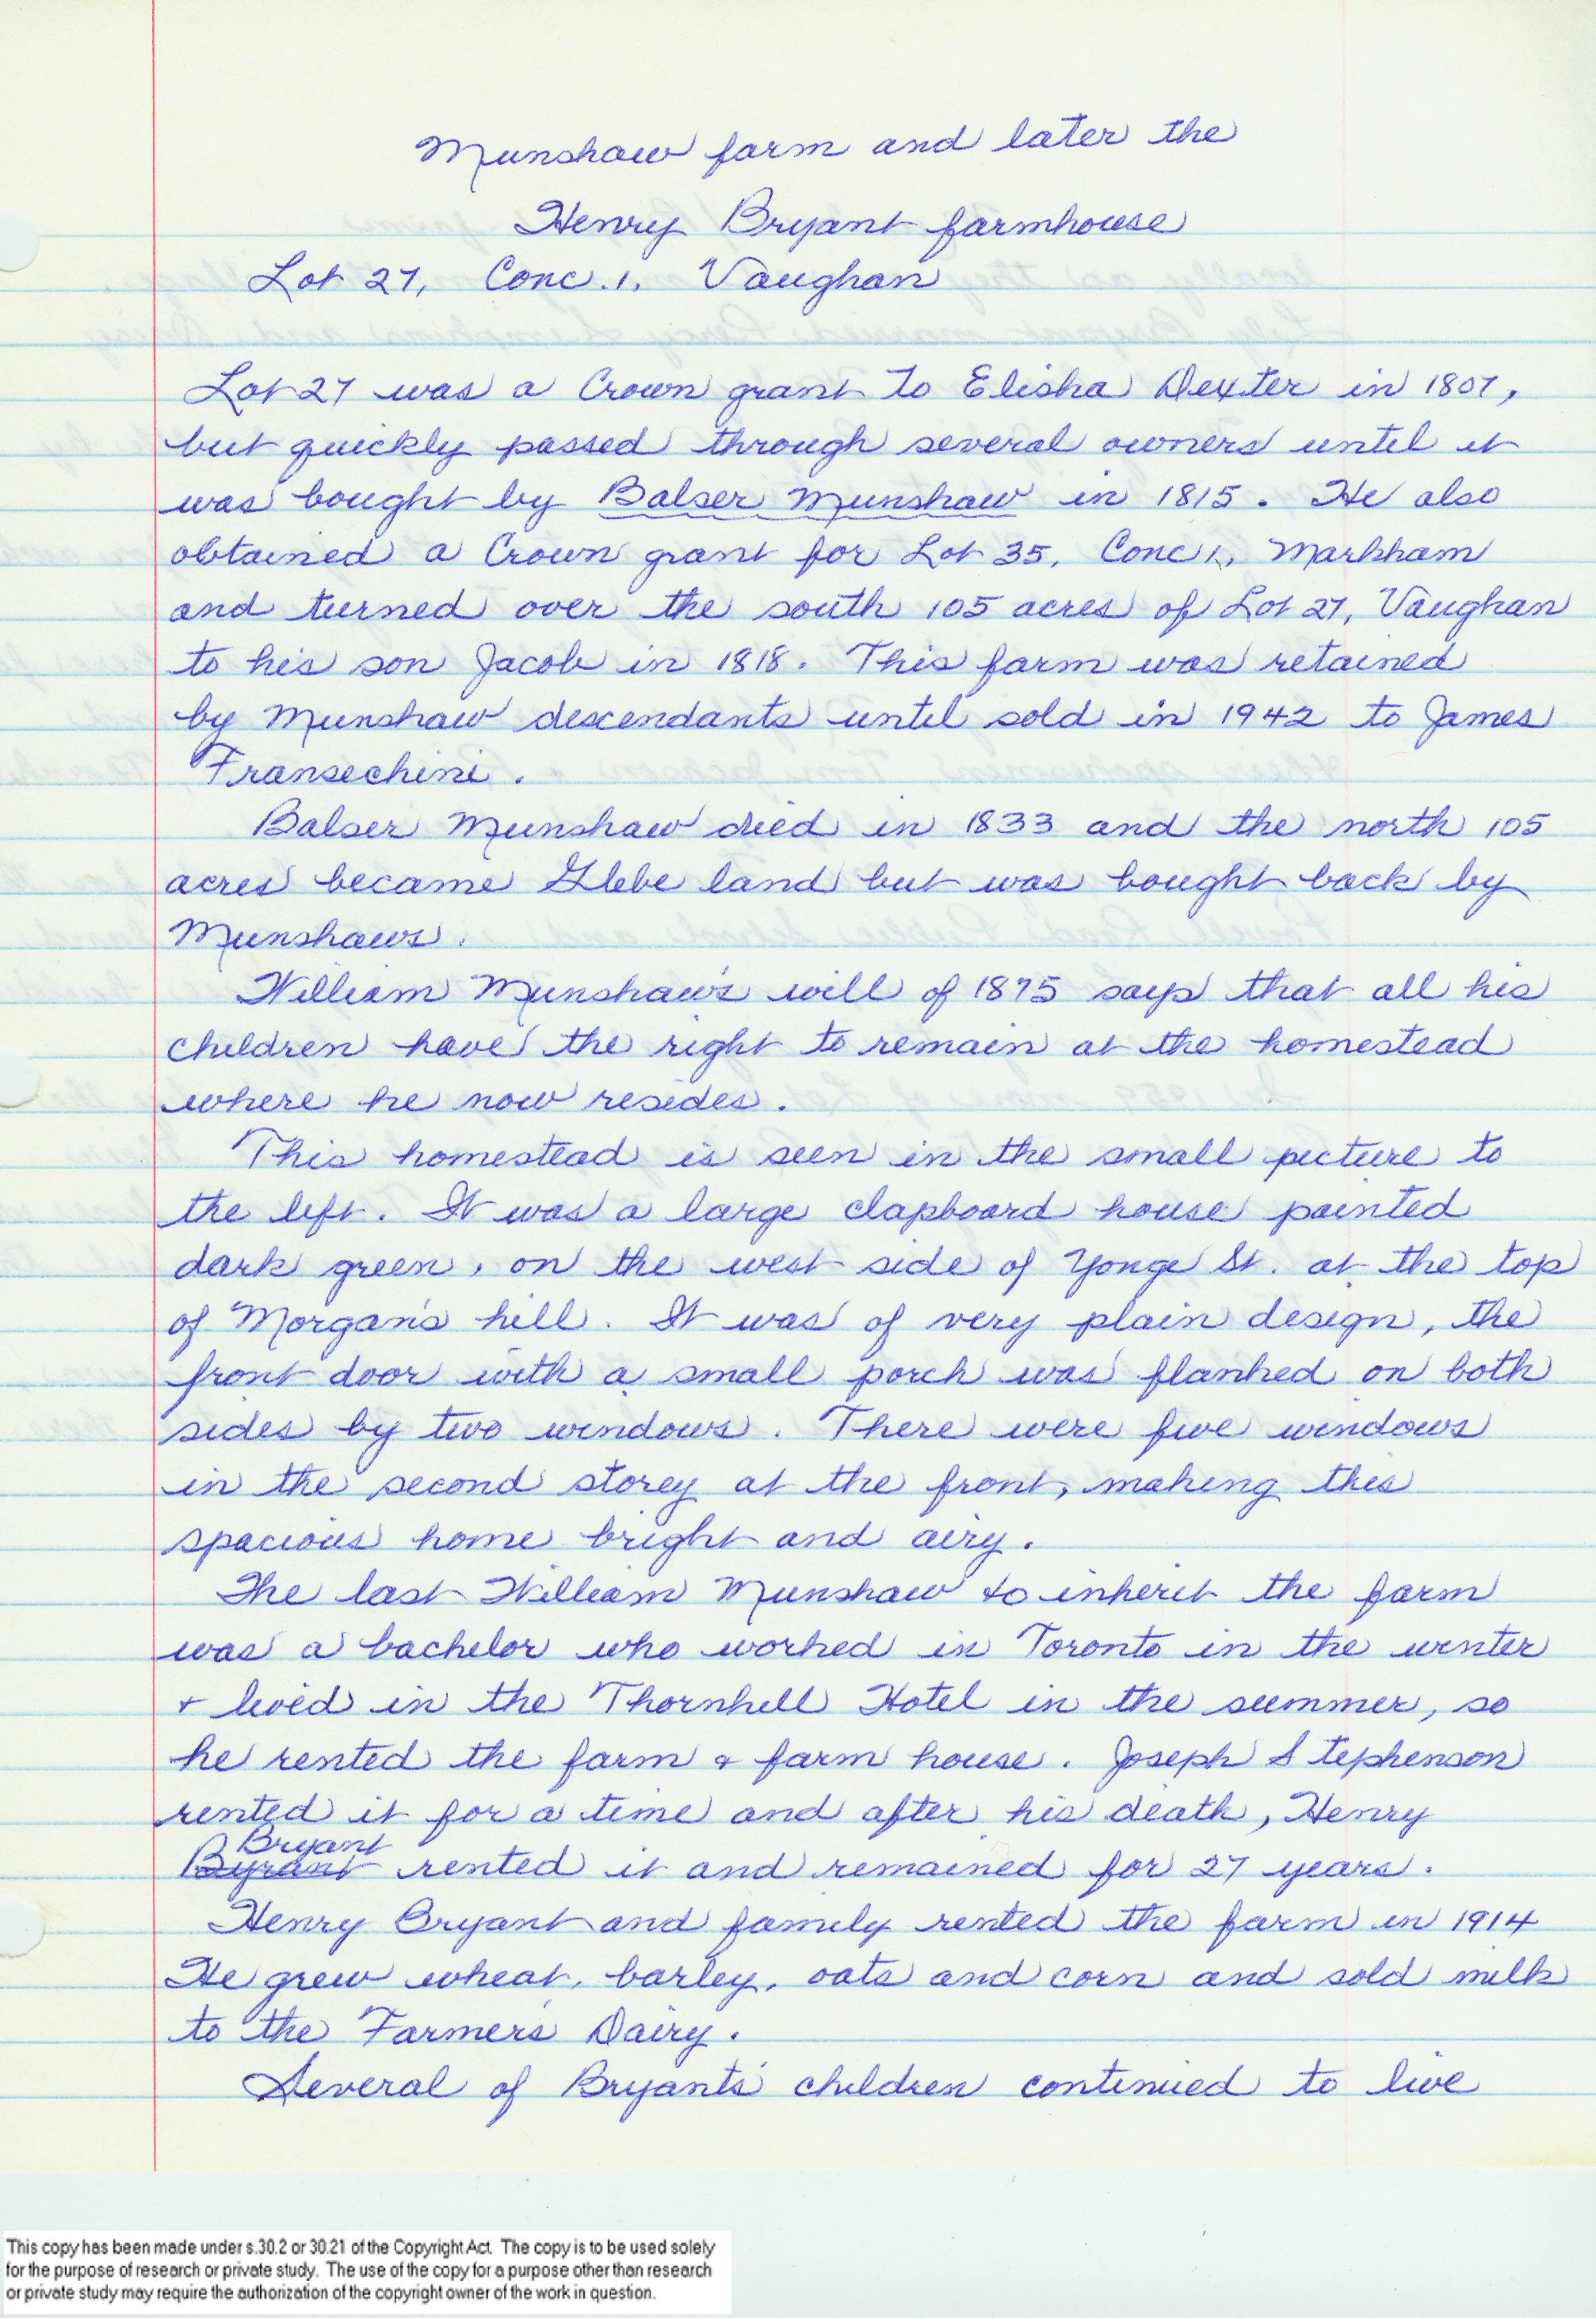 Munshaw farm and later the
Henry Bryant farmhouse
Lot 27, Conc. 1. Vaughan
Lot 27 was a Crown grant to Elisha Dexter in 1807,
but quickly passed through several owners until it
was bought by Balser Munshaw in 1815. He also
obtained a Crown grant for Lot 35, Conc 1, Markham
and turned over the south 105 acres of Lot 27, Vaughan
to his son Jacob in 1818. This farm was retained
by Munshaw descendants until sold in 1942 to James
Fransechini.
Balser Munshaw died in 1833 and the north 105
acres became Glebe land but was bought back by
Munshaws.
William Munshaw's will of 1875 says that all his
children have the right to remain at the homestead
where he now resides.
This homestead is seen in the small picture to
the left. It was a large clapboard house painted
dark green, on the west side of Yonge St. at the top
of Morgan's hill. It was of very plain design, the
front door with a small porch was flanked on both
sides by two windows. There were five windows
in the second storey at the front, making this
spacious home bright and airy.
The last William Munshaw to inherit the farm
was a bachelor who worked in Toronto in the winter
+ lived in the Thornhill Hotel in the summer, so
he rented the farm + farm house. Joseph Stephenson
rented it for a time and after his death, Henry
Bryant
Byrant rented it and remained for 27 years.
Henry Bryant and family rented the farm in 1914
He grew wheat, barley, oats and corn and sold milk
to the Farmer's Dairy.
Several of Bryants' children continued to live
This copy has been made under s.30.2 or 30.21 of the Copyright Act. The copy is to be used solely
for the purpose of research or private study. The use of the copy for a purpose other than research
or private study may require the authorization of the copyright owner of the work in question.